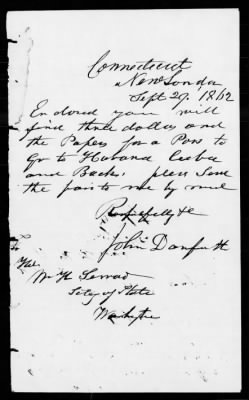 Connecticut
New Londn
Sept 29. 1862
Enclored you will
find three dollars and
the Papers for a Pass
to Go to Habana Cuba
and Back. pleas Send
the pass to me by mail
Respectfully &c
John Danforth
To
Hon.
Wm H Seward
Secty of State
Washington